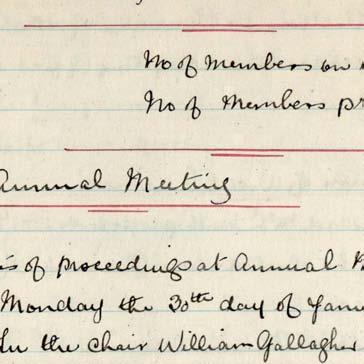 No of Members on
No of Members pr
Annual Meeting
s of proceedings at Annual
Monday the 30th day of Janu
In the chair William Gallaghe